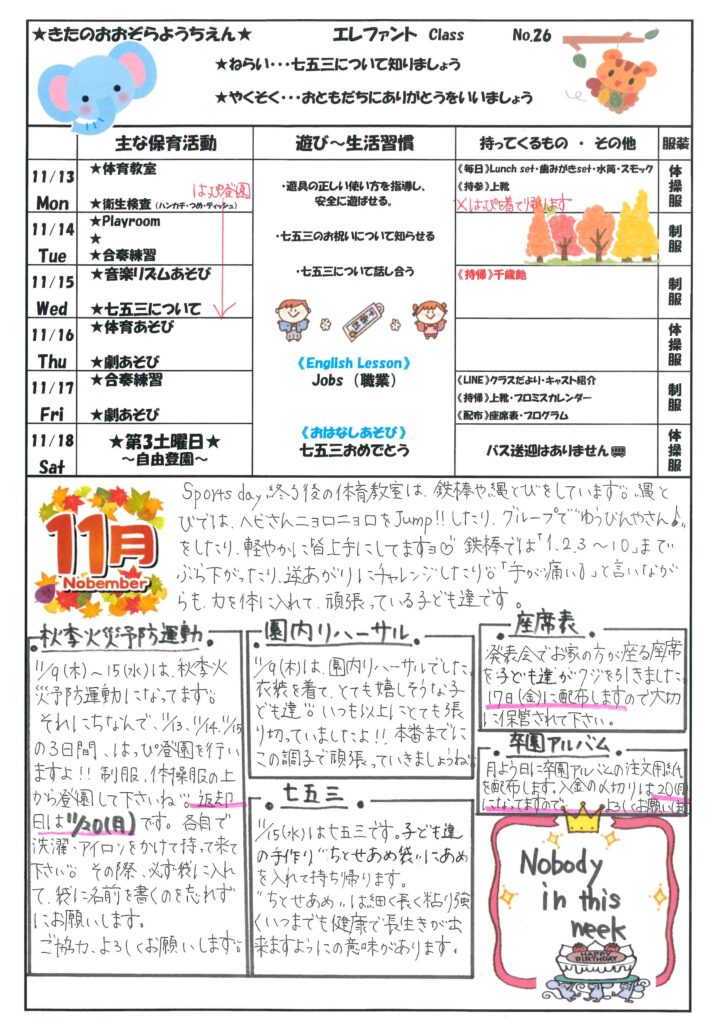 ★きたのおおぞらようちえん★ エレファント Class No.26
★ねらい・・・七五三について知りましょう
★やくそく・・・おともだちにありがとうをいいましょう
主な保育活動 遊び～生活習慣 持ってくるもの ・ その他 服装
11/13 Mon
★体育教室
はっぴ登園
★衛生検査（ハンカチ・つめ・ティッシュ）
《毎日》Lunch set・歯みがきset・水筒・スモック
《持参》上靴
×はっぴを着て帰ります
体操服
11/14 Tue
★Playroom
★
★合奏練習
制服
11/15 Wed
★音楽リズムあそび
★七五三について
《持帰》千歳飴
制服
11/16 Thu
★体育あそび
★劇あそび
体操服
11/17 Fri
★合奏練習
★劇あそび
《LINE》クラスだより・キャスト紹介
《持帰》上靴・プロミスカレンダー
《配布》座席表・プログラム
制服
11/18 Sat
★第3土曜日★
～自由登園～
バス送迎はありません
体操服
・遊具の正しい使い方を指導し、
安全に遊ばせる。
・七五三のお祝いについて知らせる
・七五三について話し合う
《English Lesson》
Jobs（職業）
《おはなしあそび》
七五三おめでとう
11月
Nobember
Sports day 終了後の体育教室は、鉄棒や縄とびをしています。縄と
びでは、ヘビさんニョロニョロをJump!!したり、グループで“ゆうびんやさん♪”
をしたり、軽やかに皆上手にしてますヨ♡ 鉄棒では「1.2.3～10」まで
ぶら下がったり、逆あがりにチャレンジしたり。「手が痛い」と言いなが
らも、力を体に入れて、頑張っている子ども達です。
秋季火災予防運動
11/9(木)～15(水)は、秋季火
災予防運動になってます。
それにちなんで、11/13、11/14、11/15
の3日間、はっぴ登園を行い
ますよ!! 制服、体操服の上
から登園して下さいね。返却
日は11/20(月)です。各自で
洗濯・アイロンをかけて持って来て
下さい。その際、必ず袋に入れ
て、袋に名前を書くのを忘れず
にお願いします。
ご協力、よろしくお願いします。
園内リハーサル
11/9(木)は、園内リハーサルでした。
衣装を着て、とても嬉しそうな子
ども達。いつも以上にとても張
り切っていましたよ!! 本番までに
この調子で頑張っていきましょうね
七五三
11/15(水)は七五三です。子ども達
の手作り“ちとせあめ袋”にあめ
を入れて持ち帰ります。
“ちとせあめ”は細く長く粘り強
くいつまでも健康で長生きが出
来ますようにの意味があります。
座席表
発表会でお家の方が座る座席
を子ども達がクジを引きました。
17日(金)に配布しますので大切
に保管されて下さい。
卒園アルバム
月よう日に卒園アルバムの注文用紙
を配布します。入金の〆切りは20(月)
になってますので、よろしくお願いします
Nobody
in this
week
HAPPY BIRTHDAY